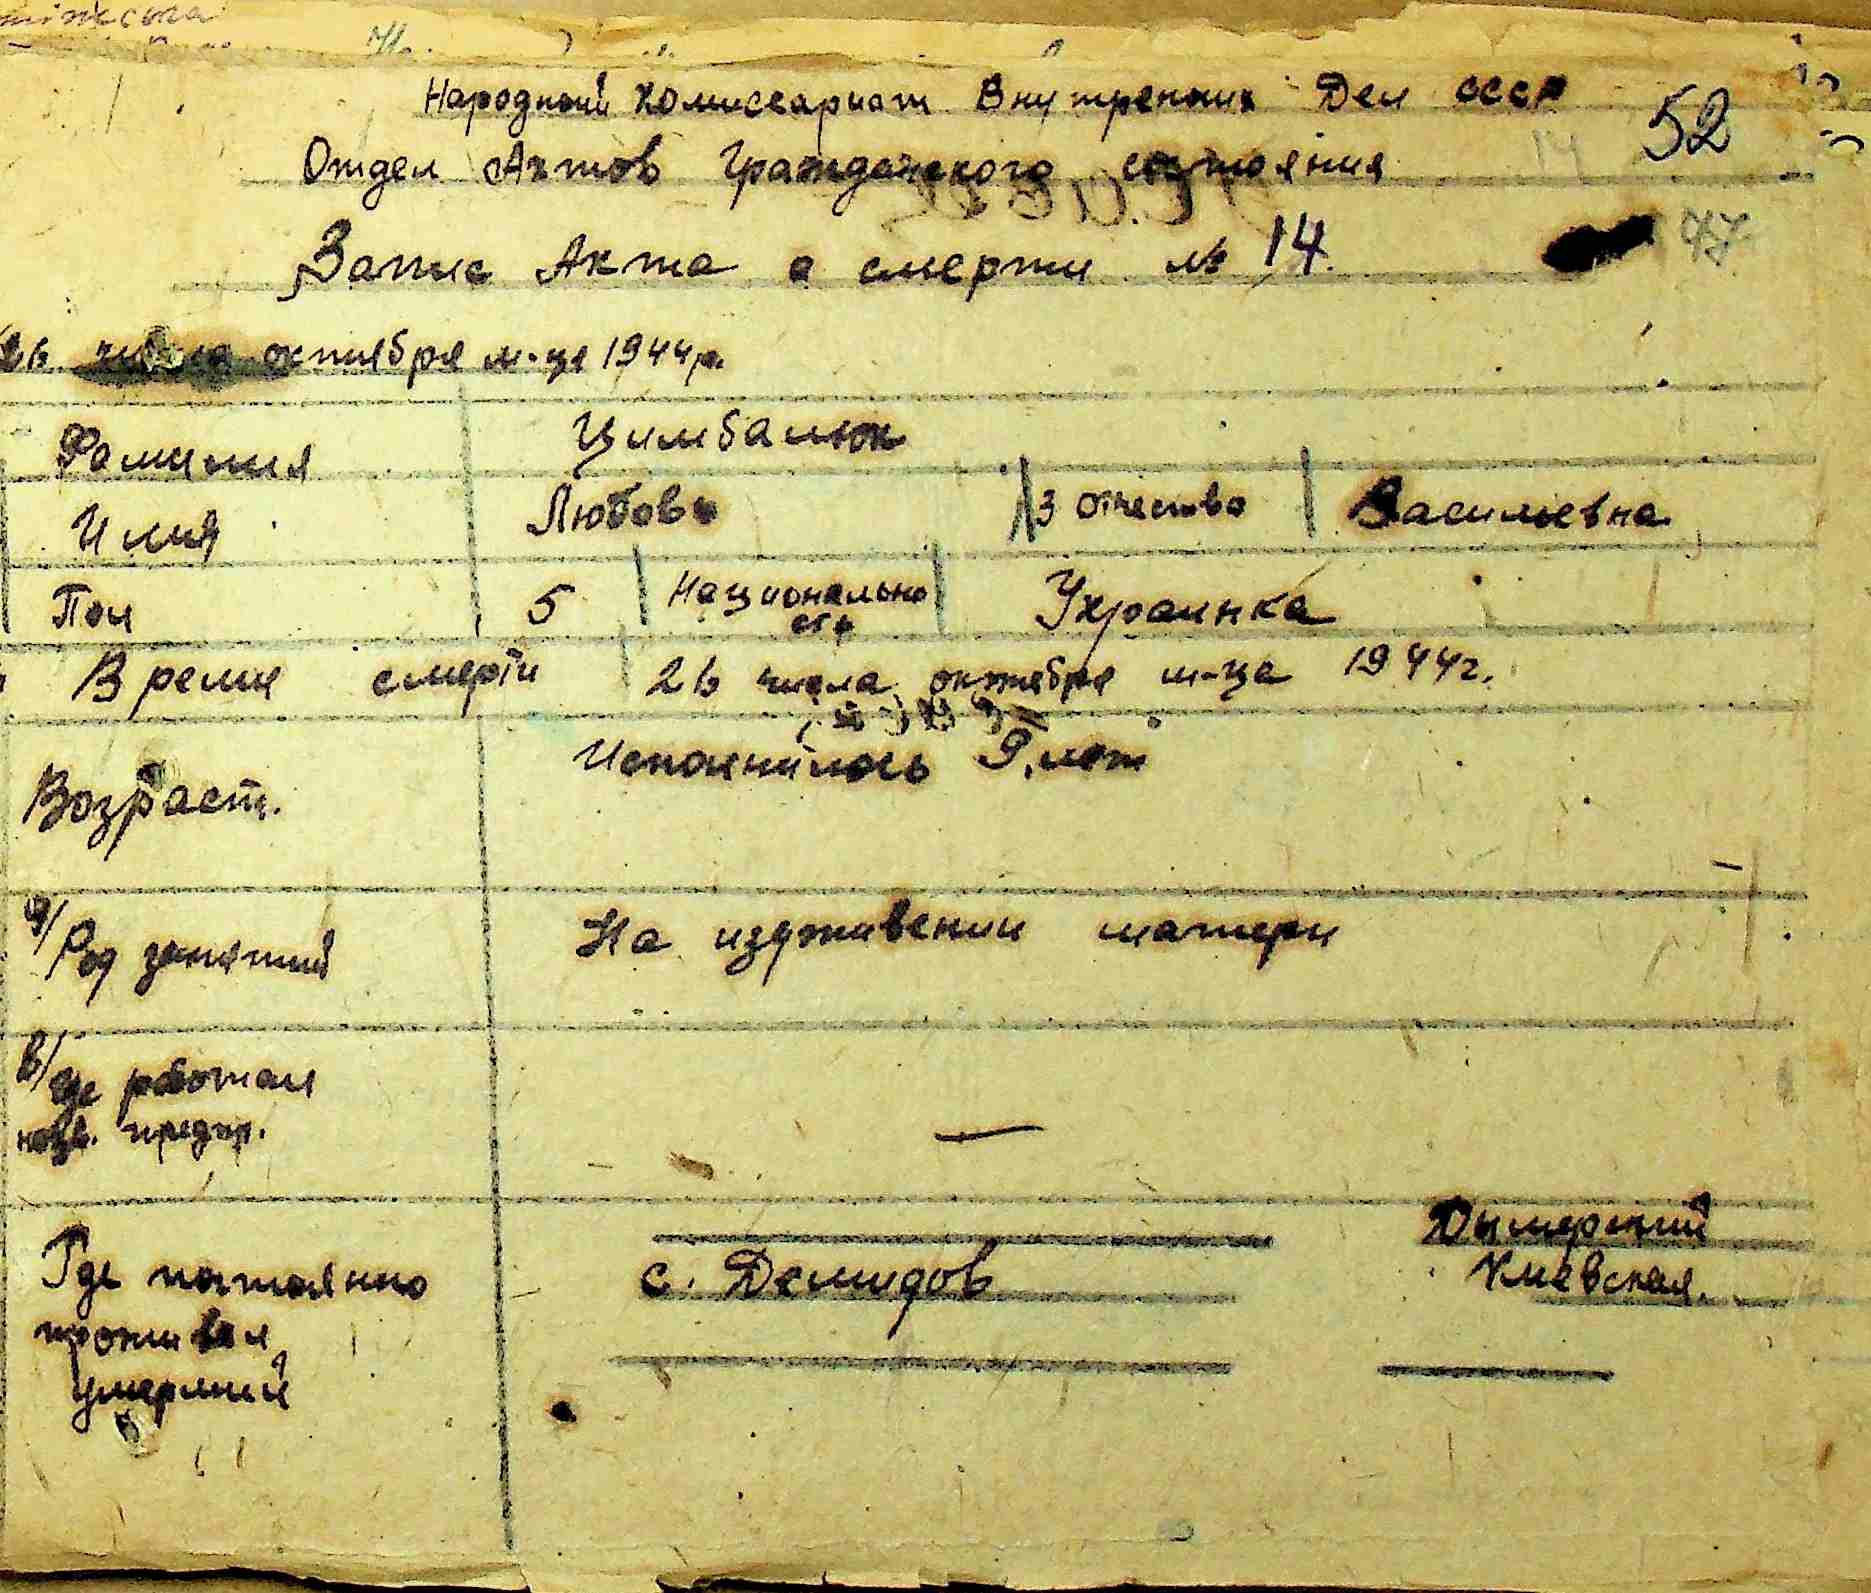 Народный Комиссариат Внутренних Дел СССР
52
Отдел Актов Гражданского состояния
14
Запис Акта о смерти № 14.
26 числа октября м-ца 1944 г.
Фамилия Цимбалюк
Имя Любовь 3 Отчество Васильевна
Пол 5 Национально
сть Украинка
Время смерти 26 числа октября м-ца 1944 г.
Возраст. Исполнилось 9 лет
а/ Род занятий На иждивении матери
в/ Где работал
назв. предпр. —
Где постоянно
проживал
умерший
с. Демидов
Дымерский
Киевская.